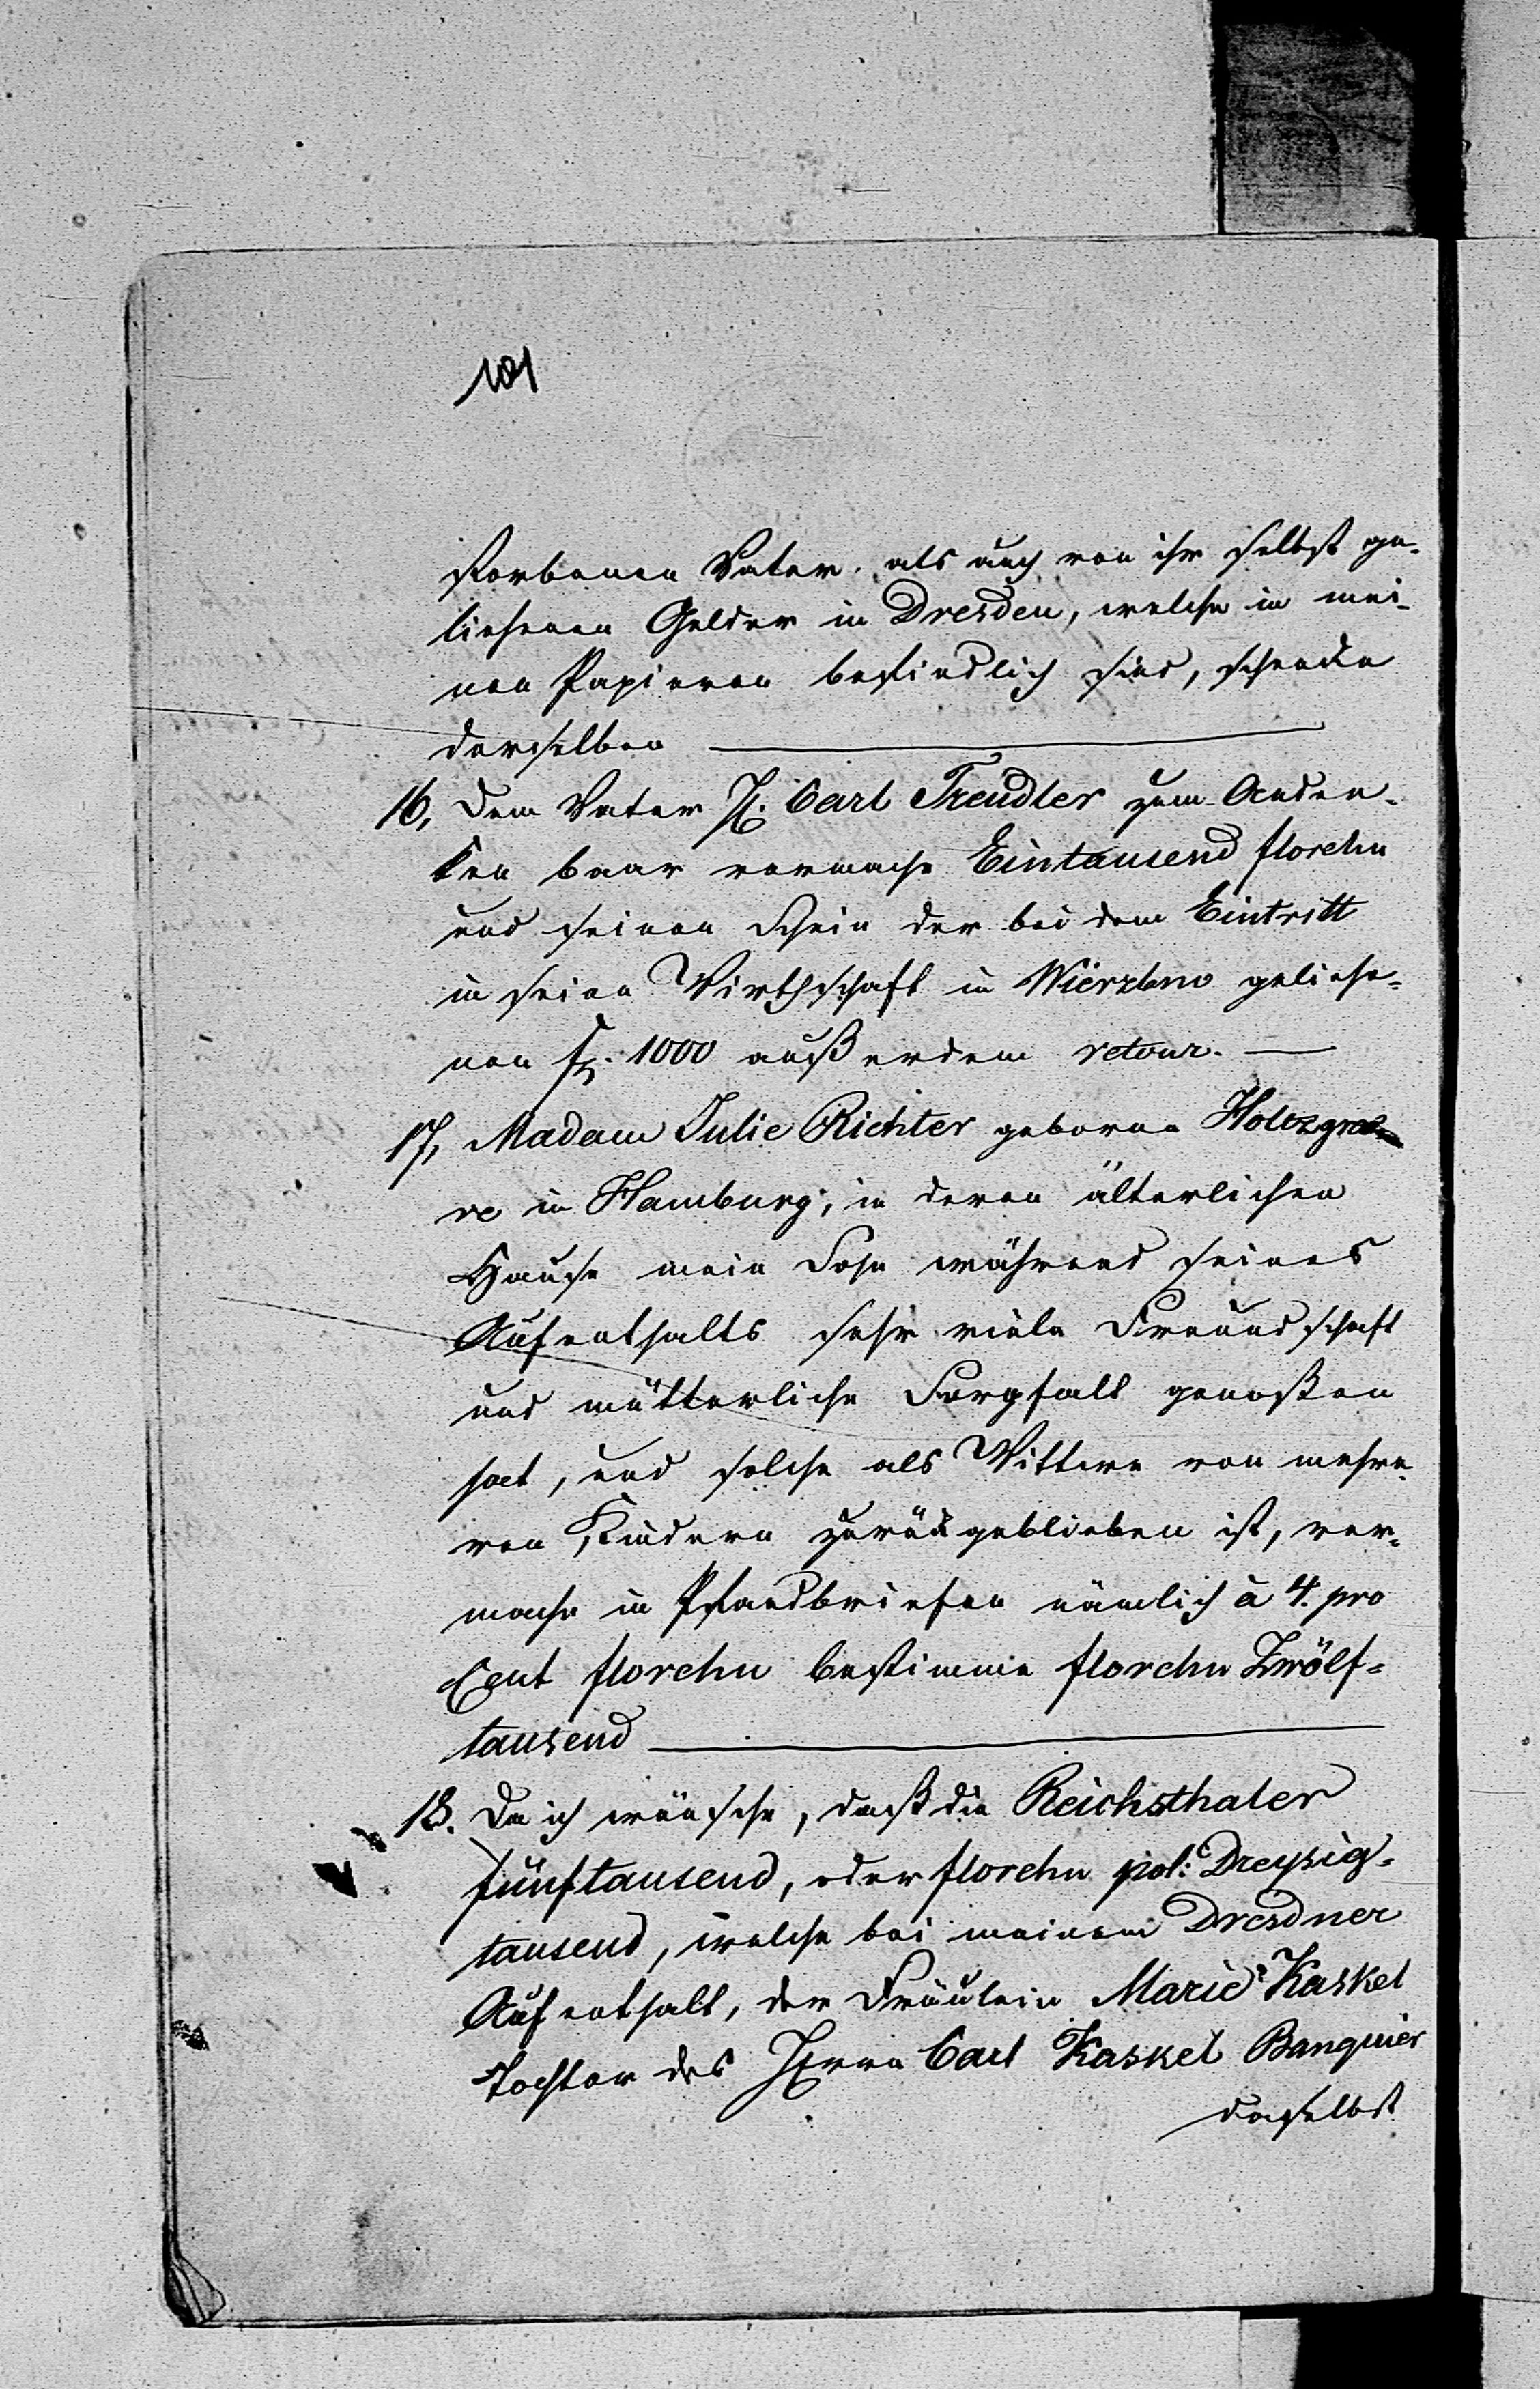 101
storbenen Vater als auch von ihr selbst ge-
liehenen Gelder in Dresden, welche in mei-
nen Papieren befindlich sind, schenke
derselben
16, Dem Vater H. Carl Treudler zum Anden-
ken baar vermache Eintausend florehn
und seinen Schein der bei dem Eintritt
in seine Wirthschaft in Wierzbno geliehe-
nen f. 1000 außerdem retour. —
17, Madam Julie Richter geborne Holtzgre
ve in Hamburg, in deren älterlichen
Hause mein Sohn während seines
Aufenthalts sehr viele Freundschaft
und mütterliche Sorgfalt genoßen
hat, und solche als Wittwe von mehre-
ren Kindern zurückgeblieben ist, ver-
mache in Pfandbriefen nämlich à 4. pro
Cent florehn bestimme florehn Zwölf-
tausend
18. Da ich wünsche, daß die Reichsthaler
fünftausend, oder florehn pol: Dreyßig-
tausend, welche bei meinem Dresdner
Aufenthalt, der Fräulein Marie Kaskel
Tochter des Herrn Carl Kaskel Banquier
daselbst